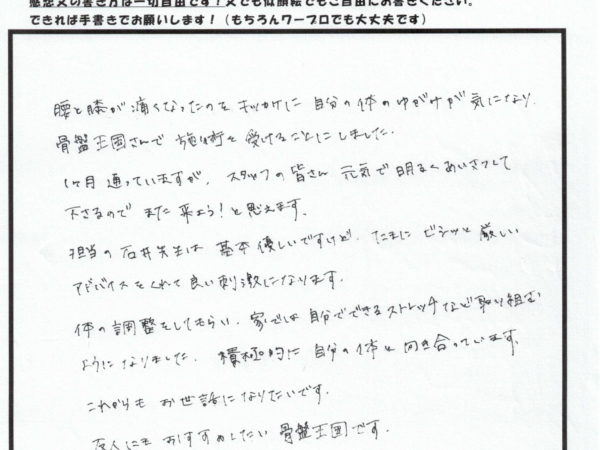 感想文の書き方は一切自由です！文でも似顔絵でもご自由にお書きください。
できれば手書きでお願いします！（もちろんワープロでも大丈夫です）
腰と膝が痛くなったのをキッカケに自分の体のゆがみが気になり
骨盤王国さんで施術を受けることにしました。
1ヶ月通っていますが、スタッフの皆さん元気で明るくあいさつして
下さるのでまた来よう！と思えます。
担当の石井先生は基本優しいですけど、たまにビシッと厳しい
アドバイスをくれて良い刺激になります。
体の調整をしてもらい、家では自分でできるストレッチなど取り組む
ようになりました。積極的に自分の体と向き合っています。
これからもお世話になりたいです。
友人にもおすすめしたい骨盤王国です。